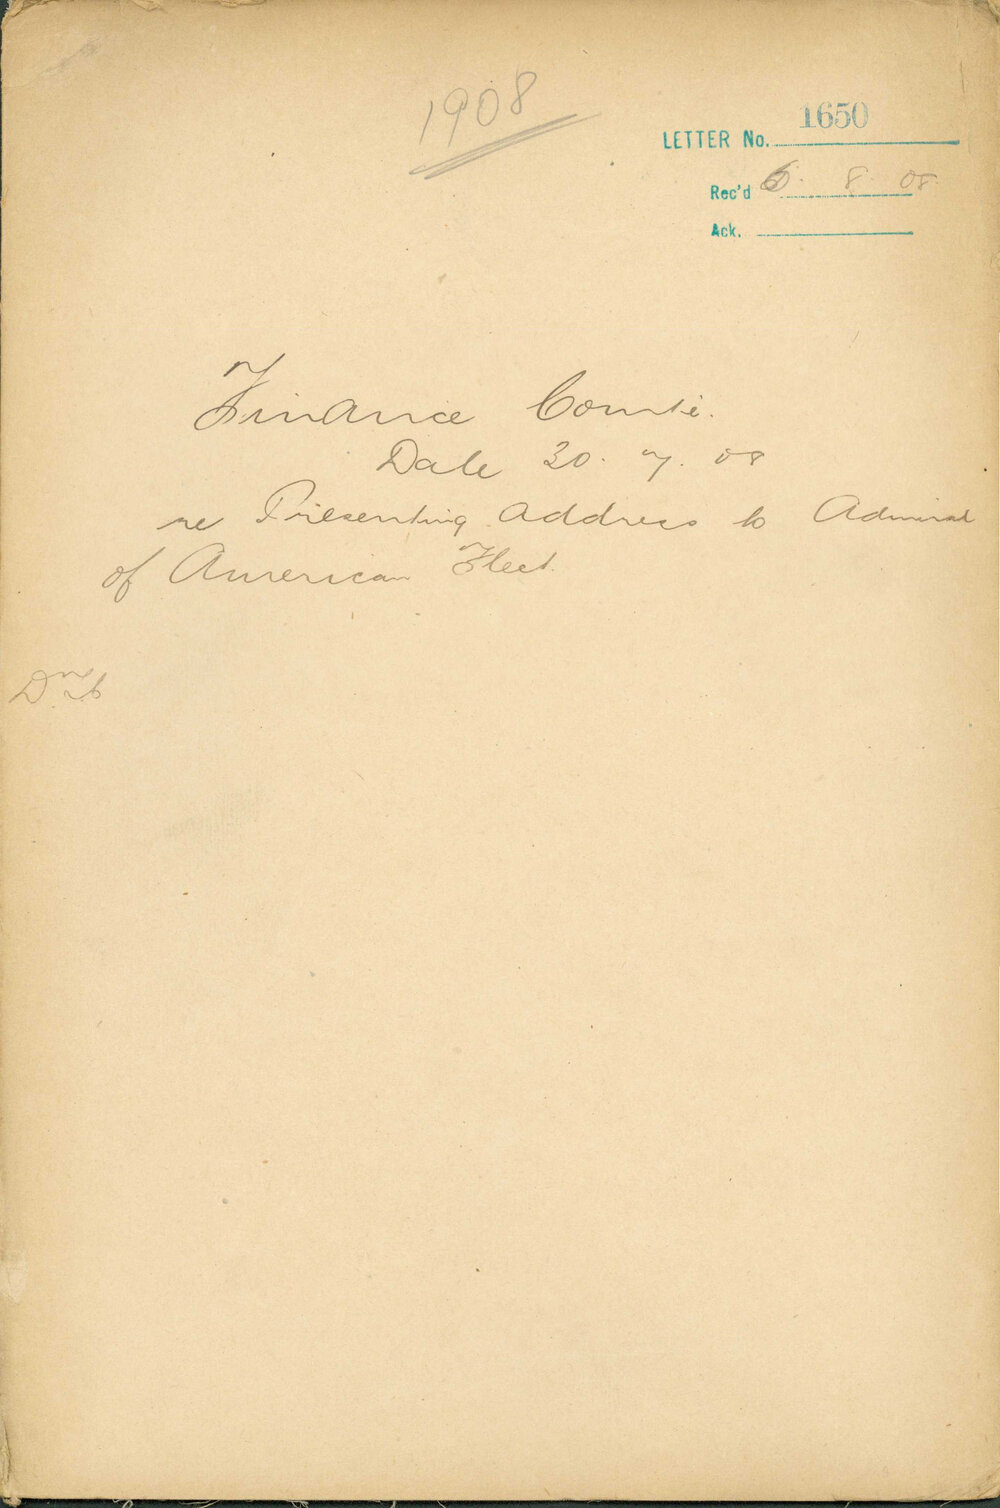 1908
LETTER No. 1650
Rec'd 6. 8. 08.
Ack.
Finance Comte.
Date 30. 7. 08
re Presenting Address to Admiral
of American Fleet.